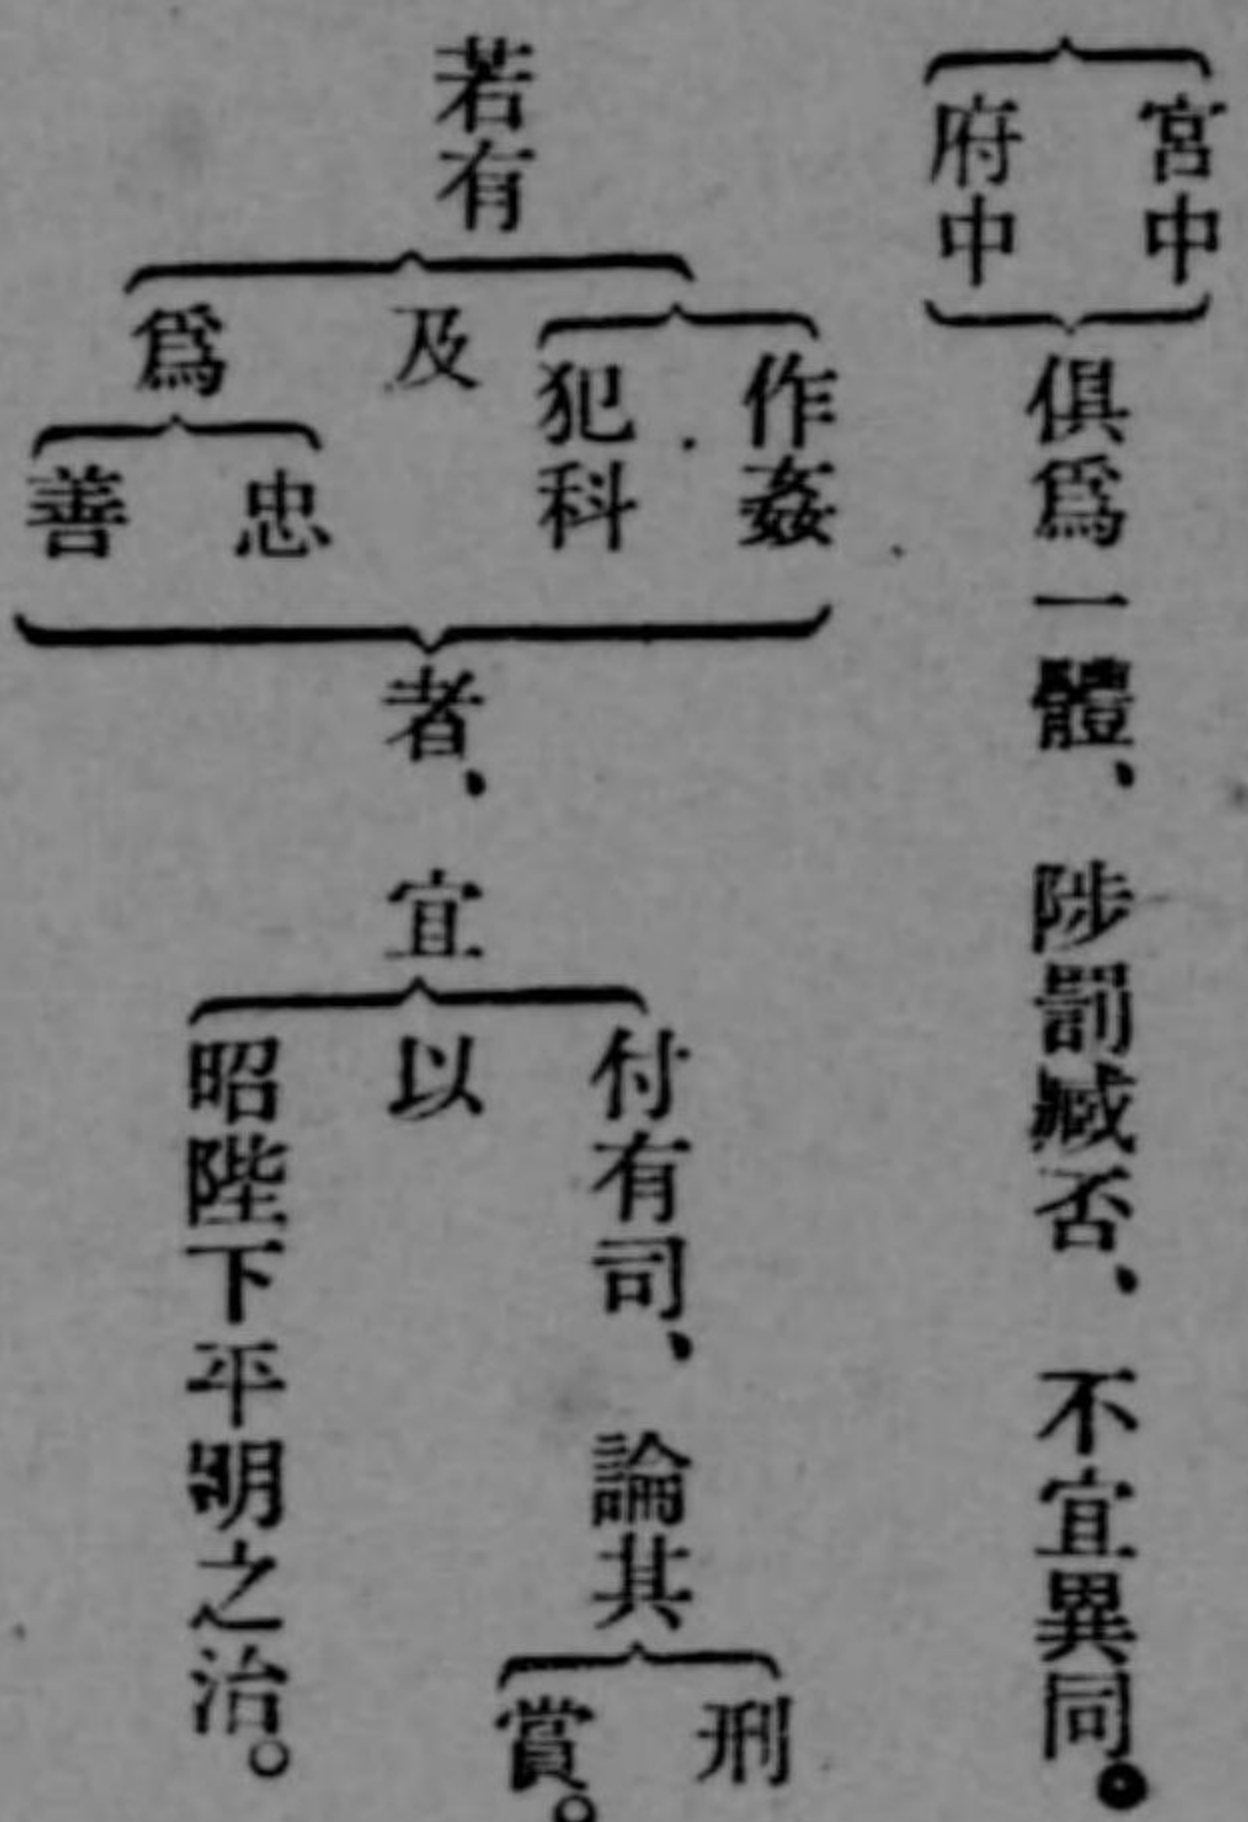 宮中
府中
俱爲一體、陟罰臧否、不宜異同。
若有
作姦
犯科
及
爲
忠
善
者、宜
付有司、論其
刑
賞。
以
昭陛下平明之治。